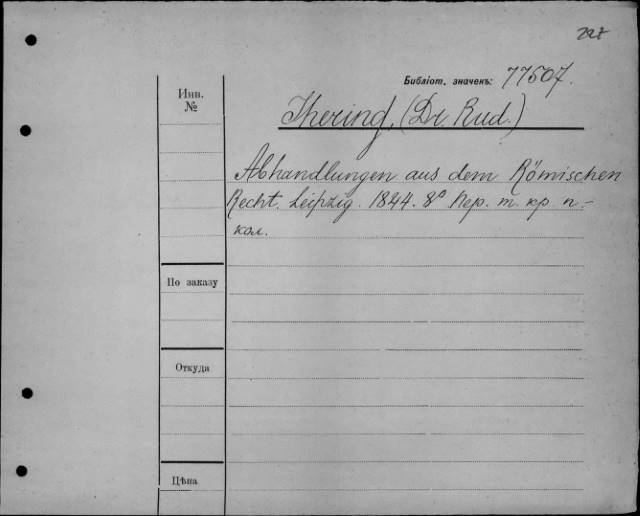 227
Библіот. значекъ: 77507.
Инв.
№
Jhering, (Dr. Rud.)
Abhandlungen aus dem Römischen
Recht. Leipzig. 1844. 8° Пер. т. кр. п.-
кол.
По заказу
Откуда
Цѣна